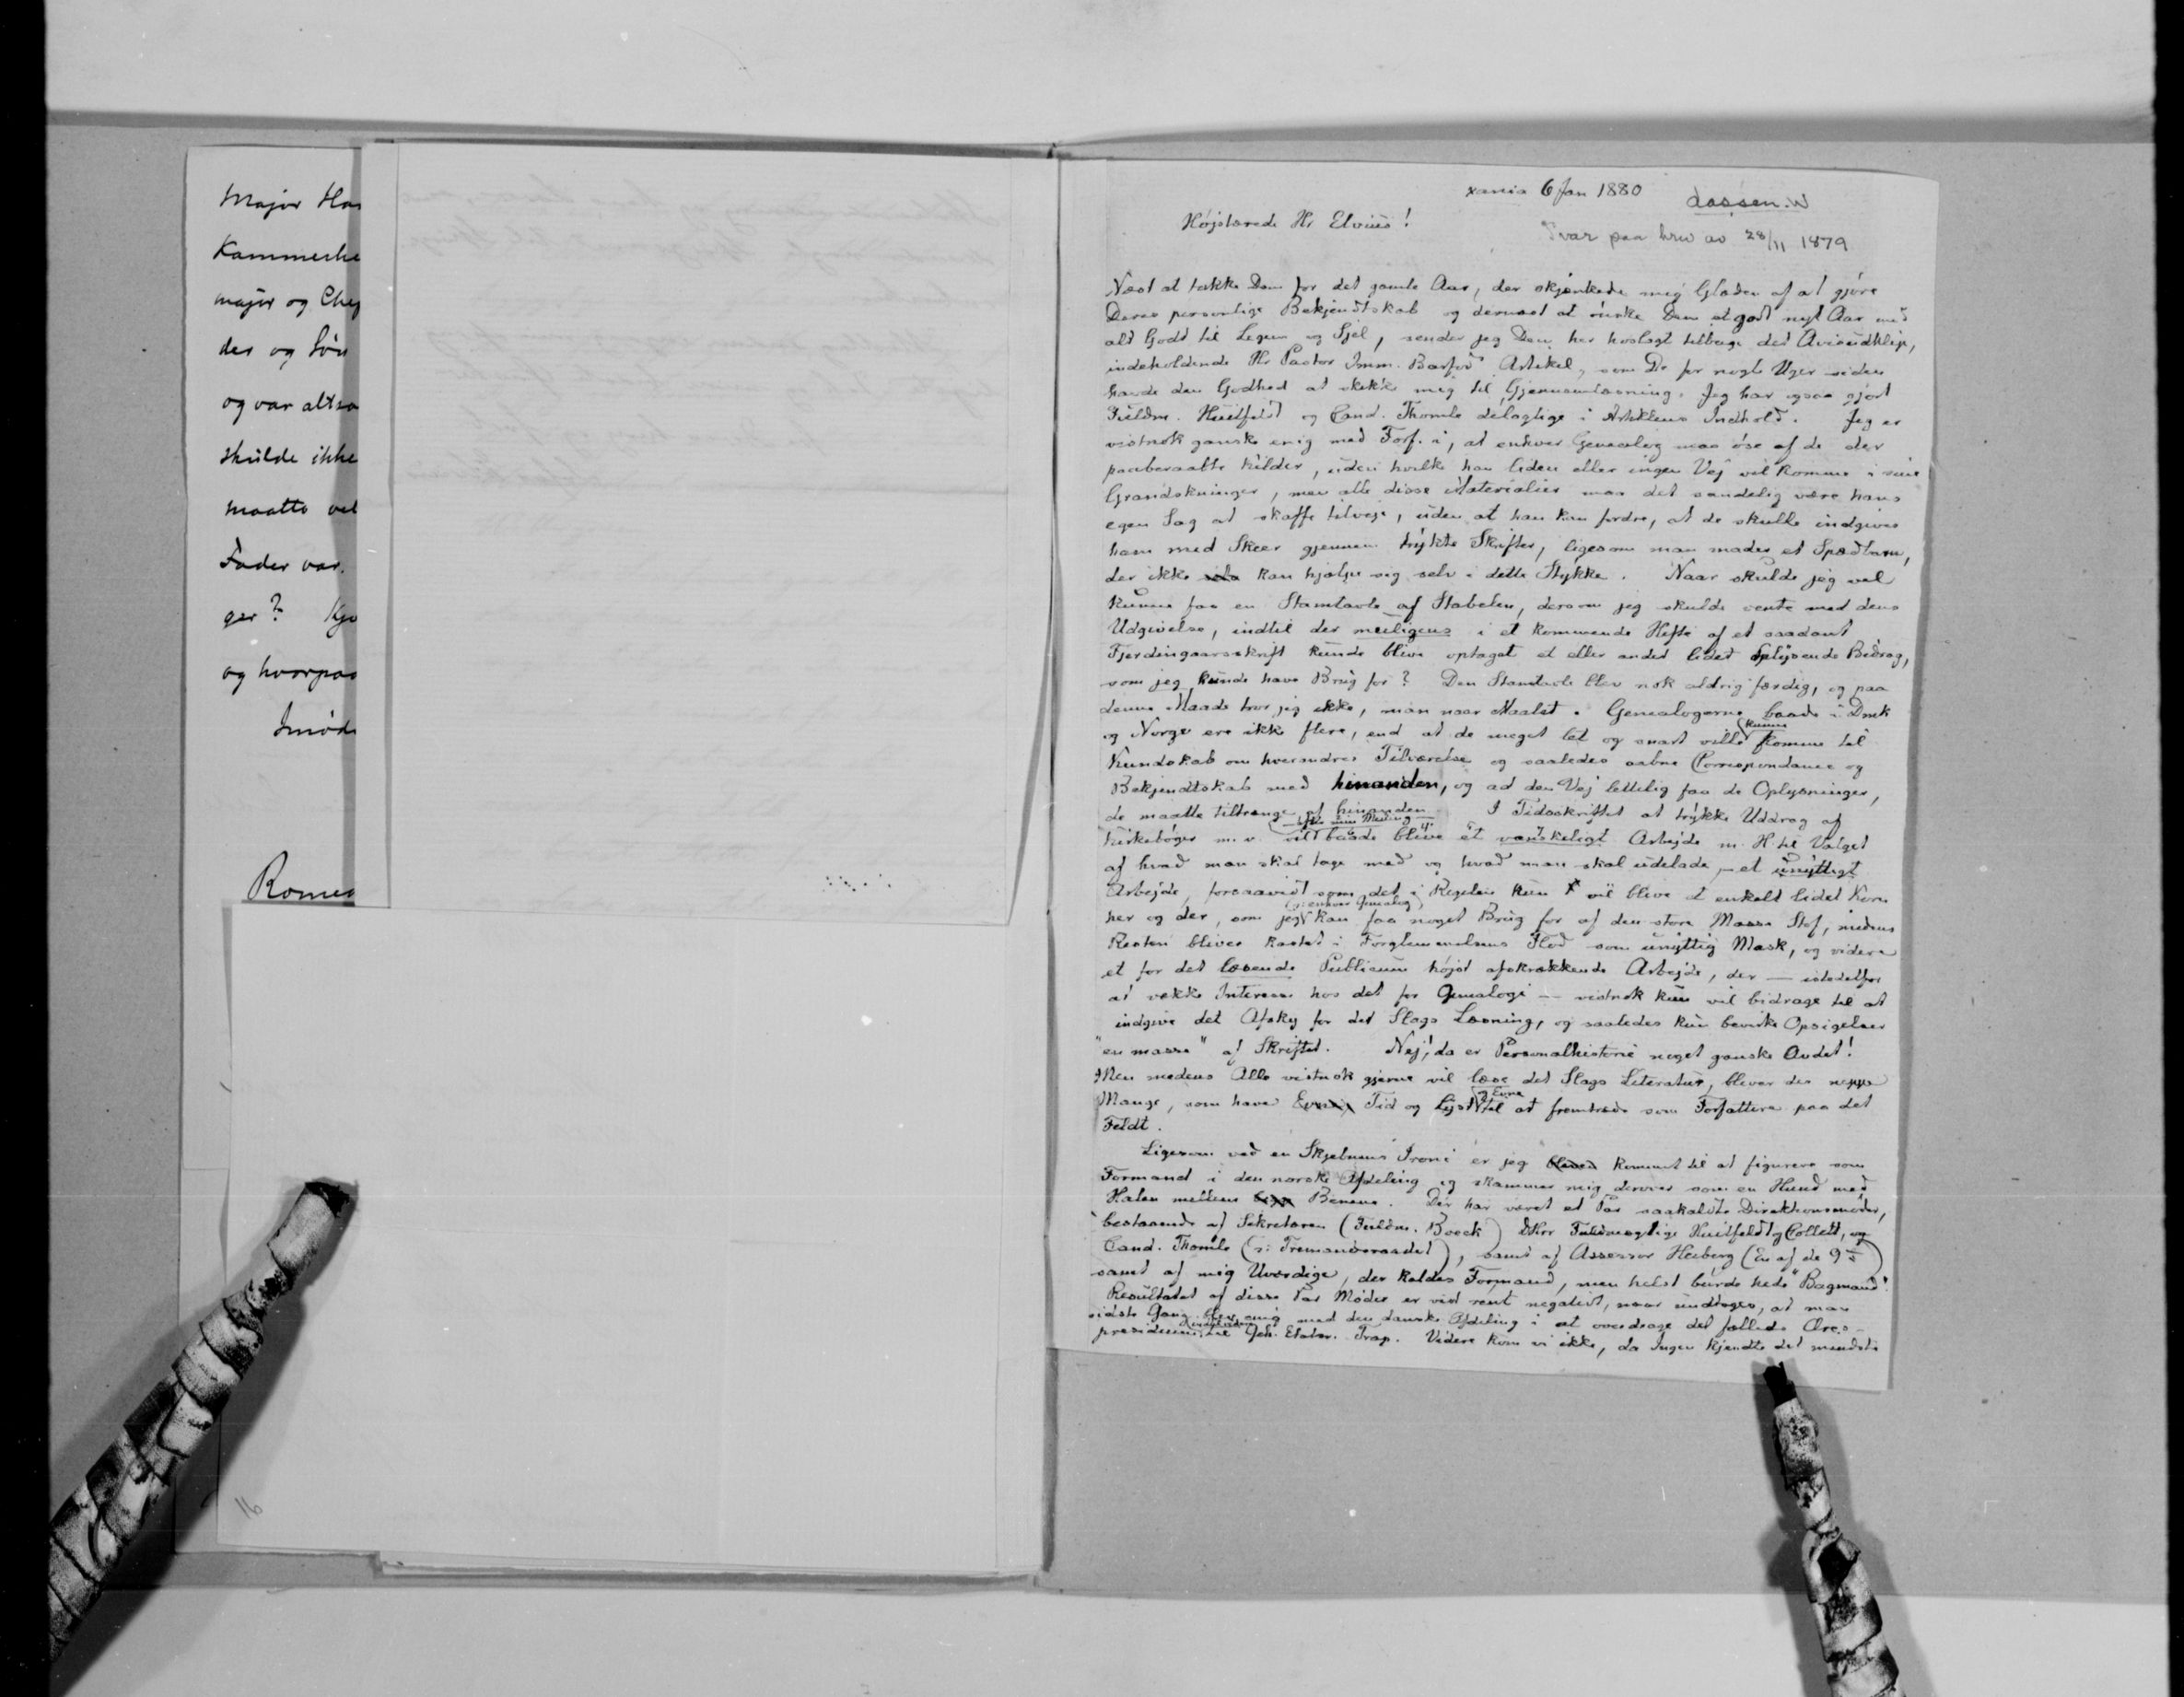 Major Han
Kammerhe
major og Chef
der og Søn
og var altsaa
skulde ikke
maatte vel
Fader var.
ger? Kjø
og hvorpaa
Imøde
Romes
16
xania 6 Jan 1880
Lassen. W
Svar paa brev av 28/11 1879
Højstærede Hr Elvius!
Næst at takke Dem for det gamle Aar, der skjænkede mig Glæden af at gjøre
Deres personlige Bekjendtskab og dernæst at ønske Dem et godt nyt Aar med
alt Godt til Legem og Sjel, sender jeg Dem her hoslagt tilbage det Avisudklip,
indeholdende Hr Pastor Imm. Barfod Artikel, som De for nogle Uger siden
havde den Godhed at skikke mig til Gjennemlæsning. Jeg har ogsaa gjort
Fuldm. Huitfeldt og Cand. Thomle delagtige i Artiklens Indhold. Jeg er
vistnok ganske enig med Forf. i, at enhver Genealog maa øse af de der
paaberaabte Kilder, uden hvilke han liden eller ingen Vej vil komme i sine
Grandskninger, men alle disse Materialier maa det sandelig være hans
egen Sag at skaffe tilveje, uden at han kan fordre, at de skulle indgives
ham med Skeer gjennem trykte Skrifter, ligesom man mader et Spædbarn,
der ikke kan hjælpe sig selv i dette Stykke. Naar skulde jeg vel
kunne faa en Stamtavle af Stabelen, dersom jeg skulde vente med dens
Udgivelse, indtil der muligens i et kommende Hefte af et saadant
Fjerdingaarsskrift kunde blive optaget et eller andet lidet oplysende Bidrag,
som jeg kunde have Brug for? Den Stamtavle blev nok aldrig færdig, og paa
denne Maade tror jeg ikke, man naar Maalet. Genealogerne baade i Dmk
og Norge ere ikke flere, end at de meget let og snart ville kunne komme til
Kundskab om hverandres Tilværelse og saaledes aabne Correspondance og
Bekjendtskab med hinanden, og ad den Vej lettelig faa de Oplysninger,
de maatte tiltrænge af hinanden. I Tidsskriftet at trykke Uddrag af
Kirkebøger m. v. vil – efter min Mening – baade blive et vanskeligt Arbejde m. H. til Valget
af hvad man skal tage med og hvad man skal udelade, – et unyttigt
Arbejde, forsaavidt som det i Regelen kun vil blive et enkelt lidet Korn
her og der, som jeg (ɔ: enhver Genealog) kan faa noget Brug for af den store Masse Stof, medens
Resten bliver kastet i Forglemmelsens Flod som unyttig Mask, og videre
et for det læsende Publicum højst afskrækkende Arbejde, der – istedetfor
at vække Interesse hos det for Genealogi – vistnok kun vil bidrage til at
indgive det Afsky for det Slags Læsning, og saaledes kun bevirke Opsigelser
"en masse" af Skriftet. Nej, da er Personalhistorie noget ganske Andet!
Men medens Alle vistnok gjerne vil læse det Slags Literatur, bliver der neppe
Mange, som have Tid og Lyst og Evne til at fremtræde som Forfattere paa det
Feldt.
Ligesom ved en Skjebnens Ironi er jeg kommet til at figurere som
Formand i den norske Afdeling og skammer mig derover som en Hund med
Halen mellem Benene. Der har været et Par saakaldte Direktionsmøder,
bestaaende af Sekretæren (Fuldm. Boeck) DHrr Fuldmægtige Huitfeldt og Collett, og
Cand. Thomle (ɔ: Tremandsraadet), samt af Assessor Heiberg (En af de 9)
samt af mig Uværdige, der kaldes Formand, men helst burde hede "Bagmand".
Resultatet af disse Par Møder er vid rent negativt, naar undtages, at man
sidste Gang blev enig med den danske Afdeling i at overdrage det fælleds Æres-
præsidium til Geh. Etatsr. Trap. Videre kom vi ikke, da Ingen kjendte det mindste